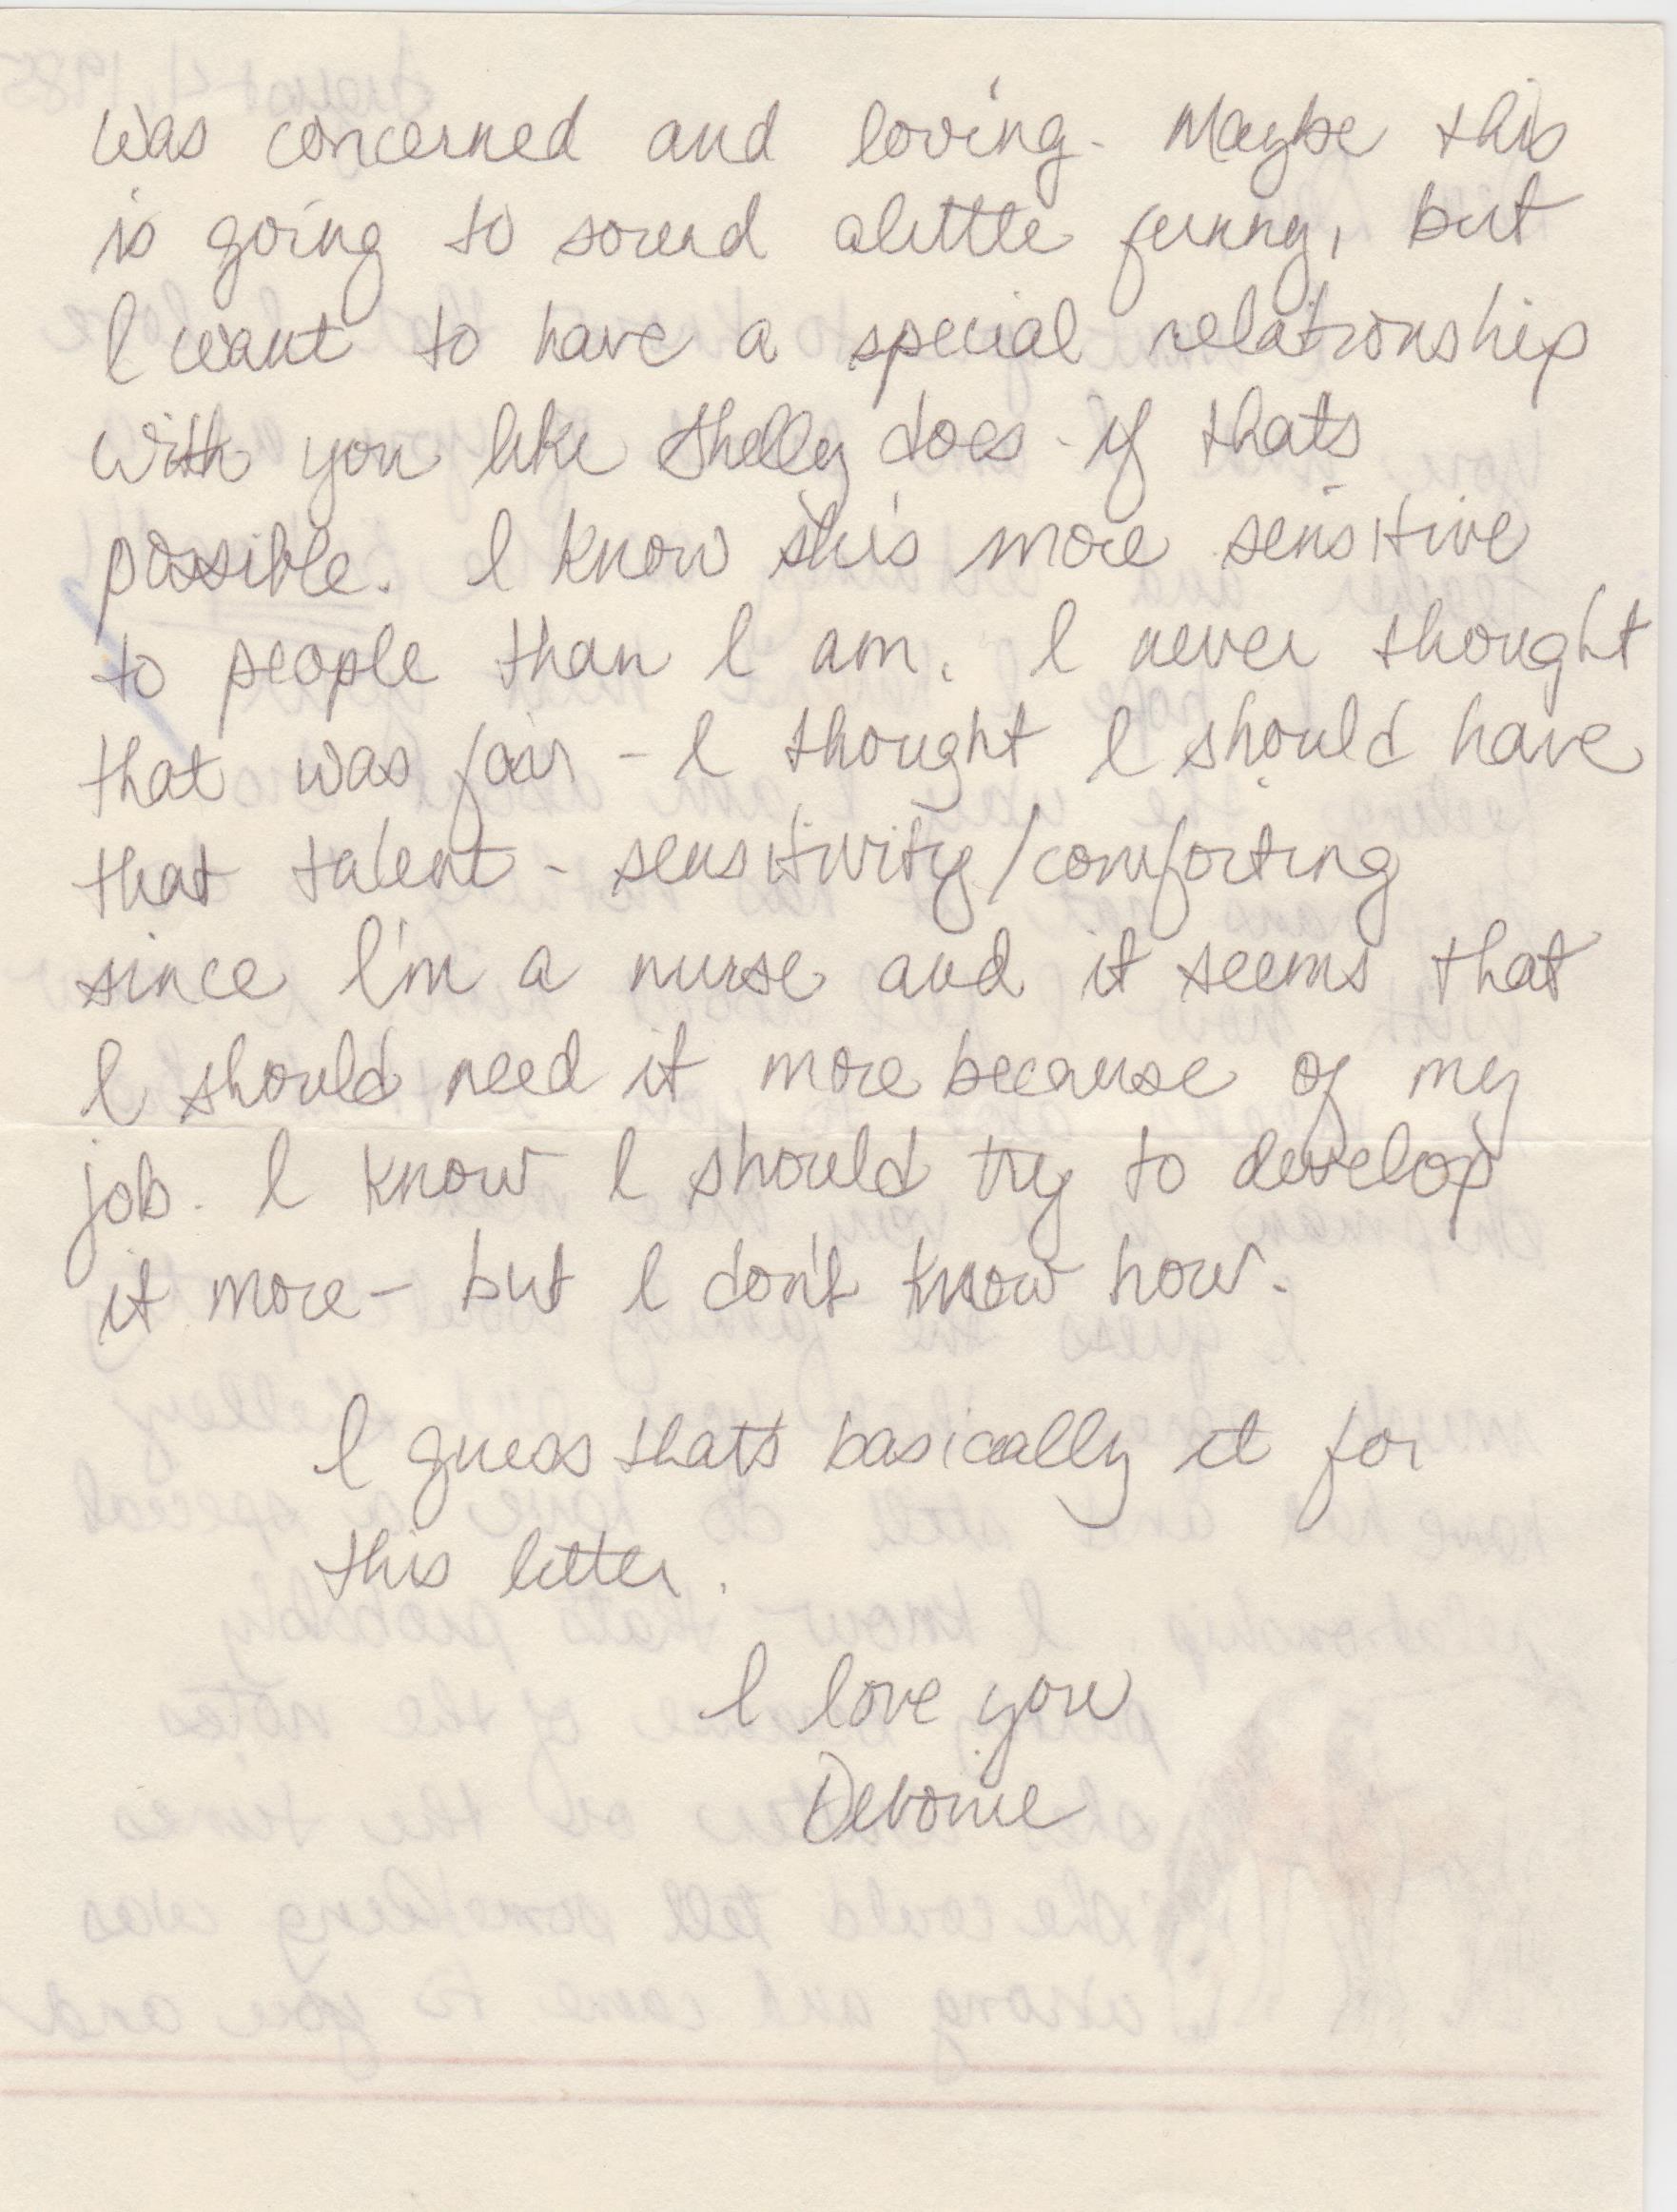 was concerned and loving. Maybe this
is going to sound alittle funny, but
I want to have a special relationship
with you like Shelley does - if thats
possible. I know she's more sensitive
to people than I am. I never thought
that was fair - I thought I should have
that talent - sensitivity/comforting
since I'm a nurse and it seems that
I should need it more because of my
job. I know I should try to develop
it more - but I don't know how.
I guess thats basically it for
this letter.
I love you